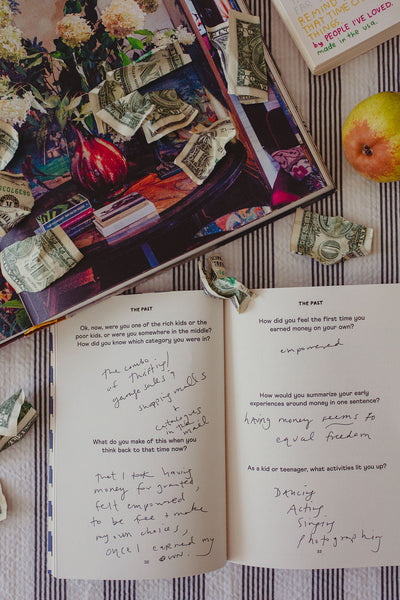 REMIND
THAT TIME CAN
THINGS.
by PEOPLE I'VE LOVED.
made in the usa.
THE PAST
Ok, now, were you one of the rich kids or the
poor kids, or were you somewhere in the middle?
How did you know which category you were in?
the combo
of thrifting/
garage sales &
shopping malls
+
catalogues
in the
mail
What do you make of this when you
think back to that time now?
that I took having
money for granted,
felt empowered
to be free & make
my own choices,
once I earned my
own.
THE PAST
How did you feel the first time you
earned money on your own?
empowered
How would you summarize your early
experiences around money in one sentence?
having money seems to
equal freedom
As a kid or teenager, what activities lit you up?
Dancing
Acting
Singing
photographing